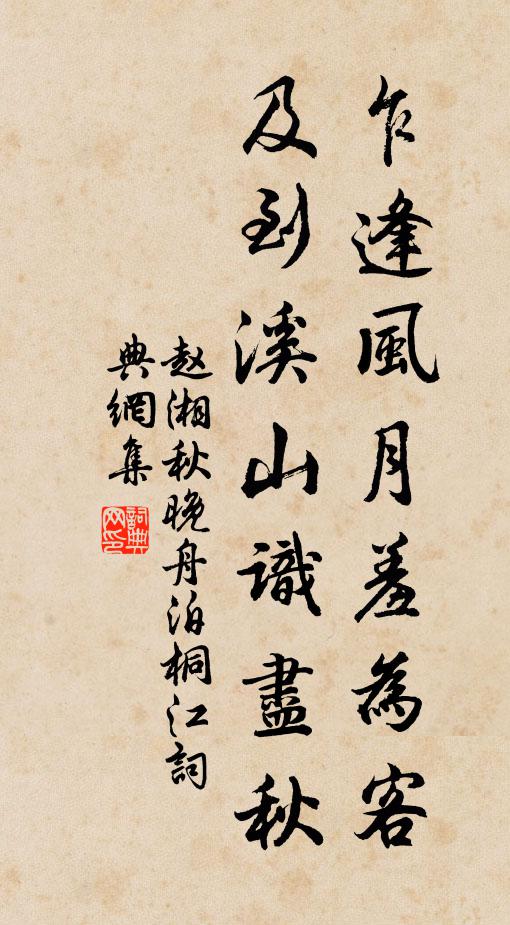 乍逢風月羞為客
及到溪山識盡秋
赵湘秋晚舟泊桐江詞
典網集
詞典
网印